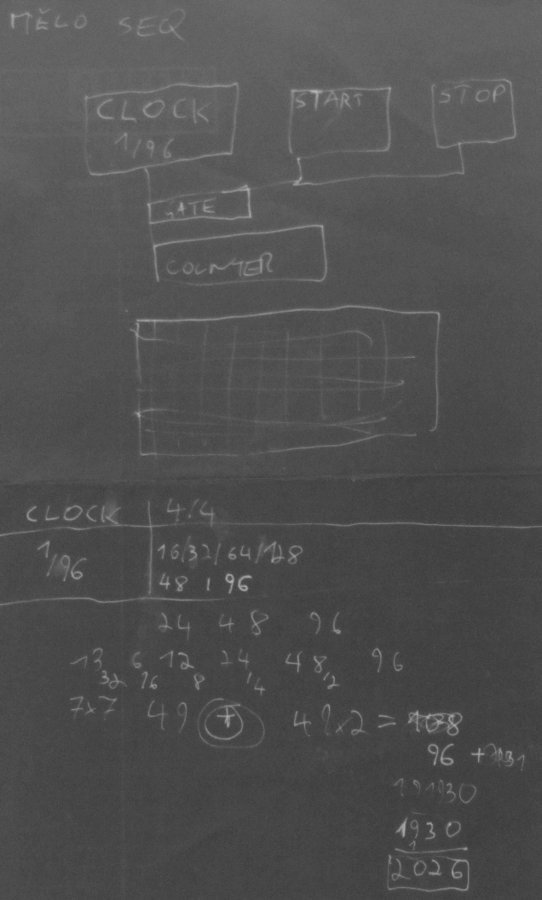 MĚLO SEQ
CLOCK START STOP
1/96
GATE
COUNTER
CLOCK 4/4
1/96 16/32/64/128
48 1 96
24 48 96
13 6 12 24 48 96
32 16 8 1/4 1/2
7x7 49 + 49x2 =
96 +
1930
2026